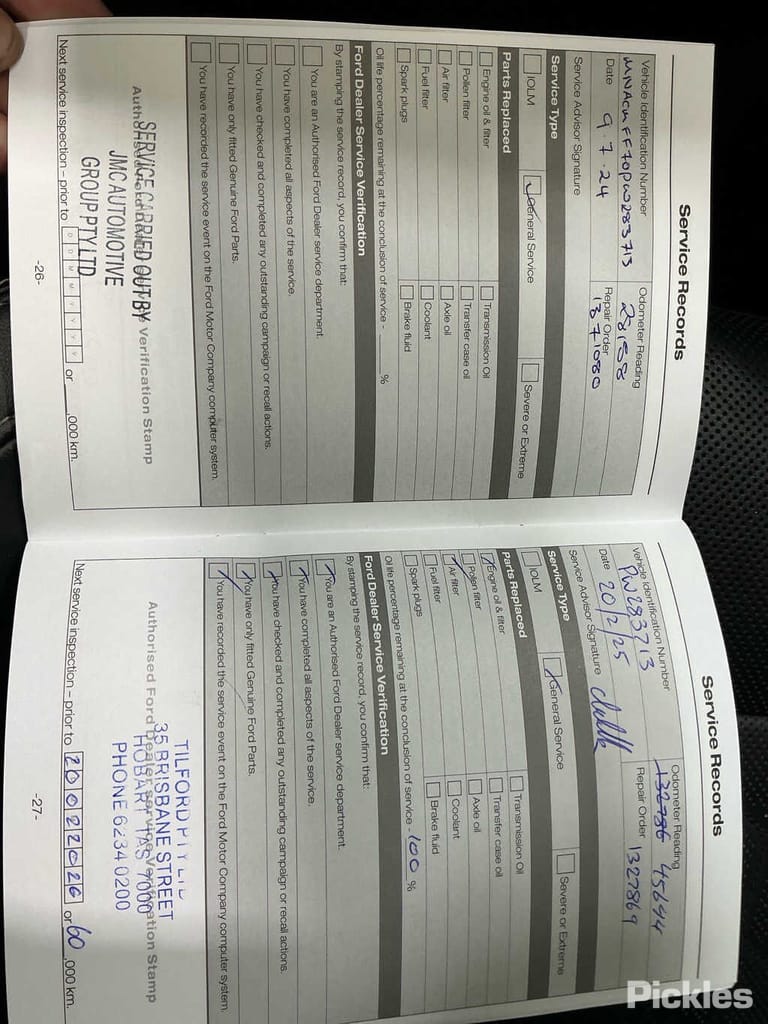 Service Records
Vehicle Identification Number
Odometer Reading
MNACMFF70PW283713
28188
Date
Repair Order
9.7.24
1371080
Service Advisor Signature
Service Type
IOLM
General Service
Severe or Extreme
Parts Replaced
Engine oil & filter
Transmission Oil
Pollen filter
Transfer case oil
Air filter
Axle oil
Fuel filter
Coolant
Spark plugs
Brake fluid
Oil life percentage remaining at the conclusion of service - %
Ford Dealer Service Verification
By stamping the service record, you confirm that:
You are an Authorised Ford Dealer service department.
You have completed all aspects of the service.
You have checked and completed any outstanding campaign or recall actions.
You have only fitted Genuine Ford Parts.
You have recorded the service event on the Ford Motor Company computer system.
Authorised Ford Dealer service Verification Stamp
SERVICE CARRIED OUT BY
JMC AUTOMOTIVE
GROUP PTY LTD
Next service inspection – prior to D D M M Y Y Y Y or ,000 km.
-26-
Service Records
Vehicle Identification Number
Odometer Reading
PW283713
132786 45694
Date 20/2/25
Repair Order 1327869
Service Advisor Signature
Service Type
IOLM
General Service
Severe or Extreme
Parts Replaced
Engine oil & filter
Transmission Oil
Pollen filter
Transfer case oil
Air filter
Axle oil
Fuel filter
Coolant
Spark plugs
Brake fluid
Oil life percentage remaining at the conclusion of service - 100 %
Ford Dealer Service Verification
By stamping the service record, you confirm that:
You are an Authorised Ford Dealer service department.
You have completed all aspects of the service.
You have checked and completed any outstanding campaign or recall actions.
You have only fitted Genuine Ford Parts.
You have recorded the service event on the Ford Motor Company computer system.
TILFORD PTY LTD
35 BRISBANE STREET
Authorised Ford Dealer service Verification Stamp
HOBART TAS 7000
PHONE 6234 0200
Next service inspection – prior to 20022026 or 60 ,000 km.
-27-
Pickles